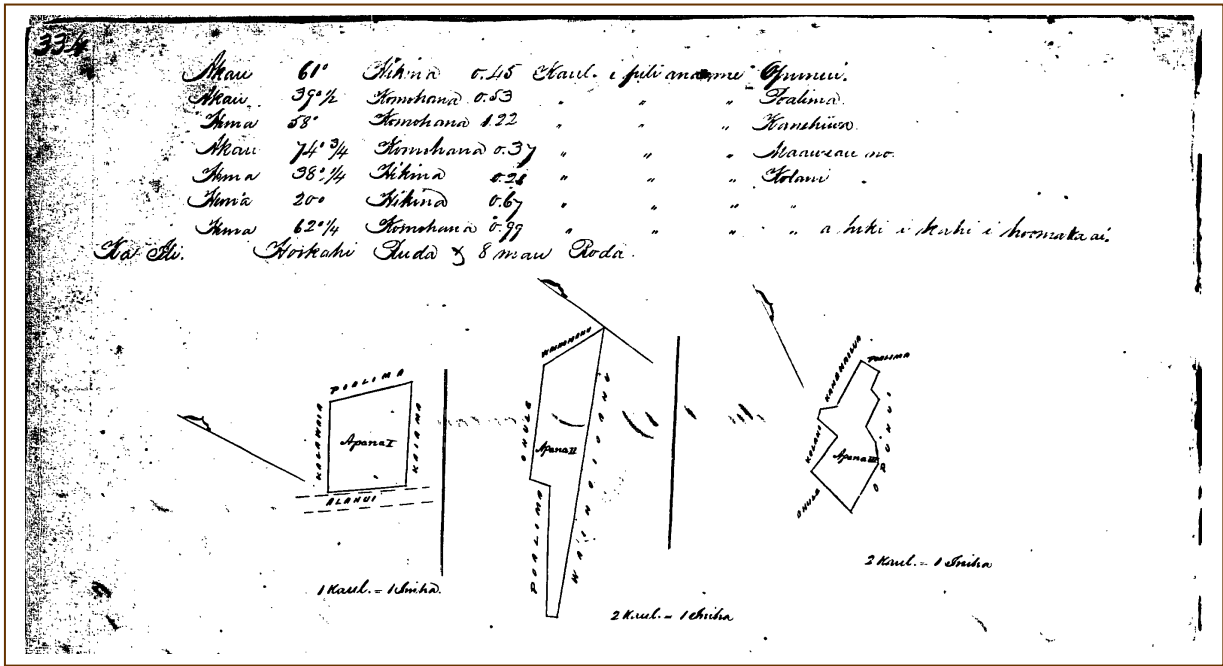 334
Akau 61° Hikina 0.45 Kaul. e pili ana me Opunui.
Akau 39°½ Komohana 0.53 " " " Poalima
Hema 58° Komohana 1.22 " " "
Akau 74°¾ Komohana 0.37 " " "
Hema 38°¼ Hikina 0.28 " " " Kolani
Hema 20° Hikina 0.67 " " "
Hema 62°¼ Komohana 0.99 " " " " a hiki i kahi i hoomaka ai.
Ka Ili. Hookahi Ruda & 8 mau Roda.
POALIMA
KALAWAIA
Apana I
KAIAMA
ALANUI
1 Kaul. = 1 Iniha.
OHULE
Apana II
POALIMA
2 Kaul. = 1 Iniha
POALIMA
KOLANI
Apana III
OPUNUI
OHULE
3 Kaul. = 1 Iniha